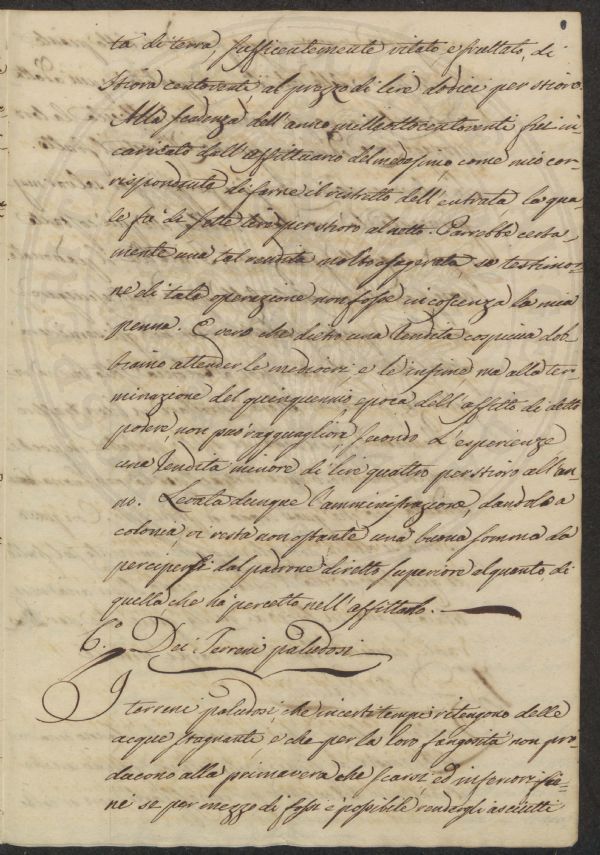 tà di terra, sufficientemente vitato e fruttato, di
stiora centoventi al prezzo di lire dodici per stioro.
Alla scadenza dell'anno milleottocentoventi fui in
caricato dall'affittuario del medesimo, come mio cor
rispondente di farne il ristretto dell'entrata, la qua-
le fù di sette lire per stioro al netto. Parrebbe certa-
mente una tal rendita molto esagerata, se testimo-
ne di tale operazione non fosse in coscienza la mia
penna. È vero che dietro una rendita cospicua dob
biamo attender le mediocri, e le infime, ma alla ter-
minazione del quinquennio, epoca dell'affitto di detto
podere, non può ragguagliare, secondo l'esperienze
una rendita minore di lire quattro per stioro all'an-
no. Levata dunque l'amministrazione, dandola a
colonia, vi resta non ostante una buona somma da
percipersi dal padrone diretto superiore alquanto, di
quella, che ha percetto nell'affittarlo.
6.° Dei Terreni paludosi
I terreni paludosi, che in certi tempi ritengono delle
acque stagnanti e che per la loro fangosità non pro-
ducono alla primavera che scarsi, ed inferiori fie-
ni se per mezzo di fossi è possibile rendergli asciutti